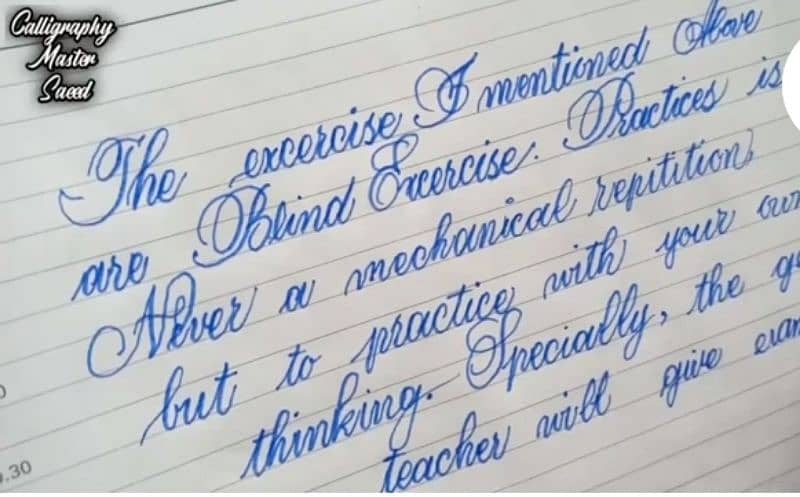 Calligraphy
Master
Saeed
The excercise I mentioned Above
are Blind Excercise. Practices is
Never a mechanical repitition,
but to practice with your own
thinking. Specially, the
teacher will give
.30